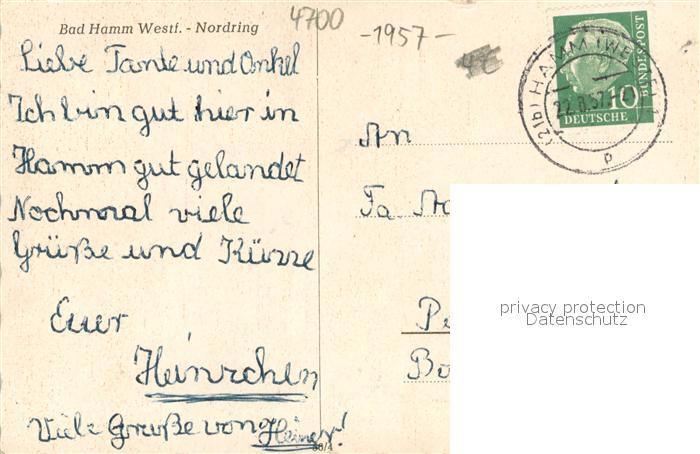 Bad Hamm Westf. - Nordring
4700
-1957-
Liebe Tante und Onkel
Ich bin gut hier in
Hamm gut gelandet
Nochmal viele
Grüße und Küsse
Euer
Heinzchen
Viele Grüße von Heiner!
36/4
An
Fa
10
DEUTSCHE
BUNDESPOST
(21b) HAMM (WESTF
22.8.57
p
privacy protection
Datenschutz